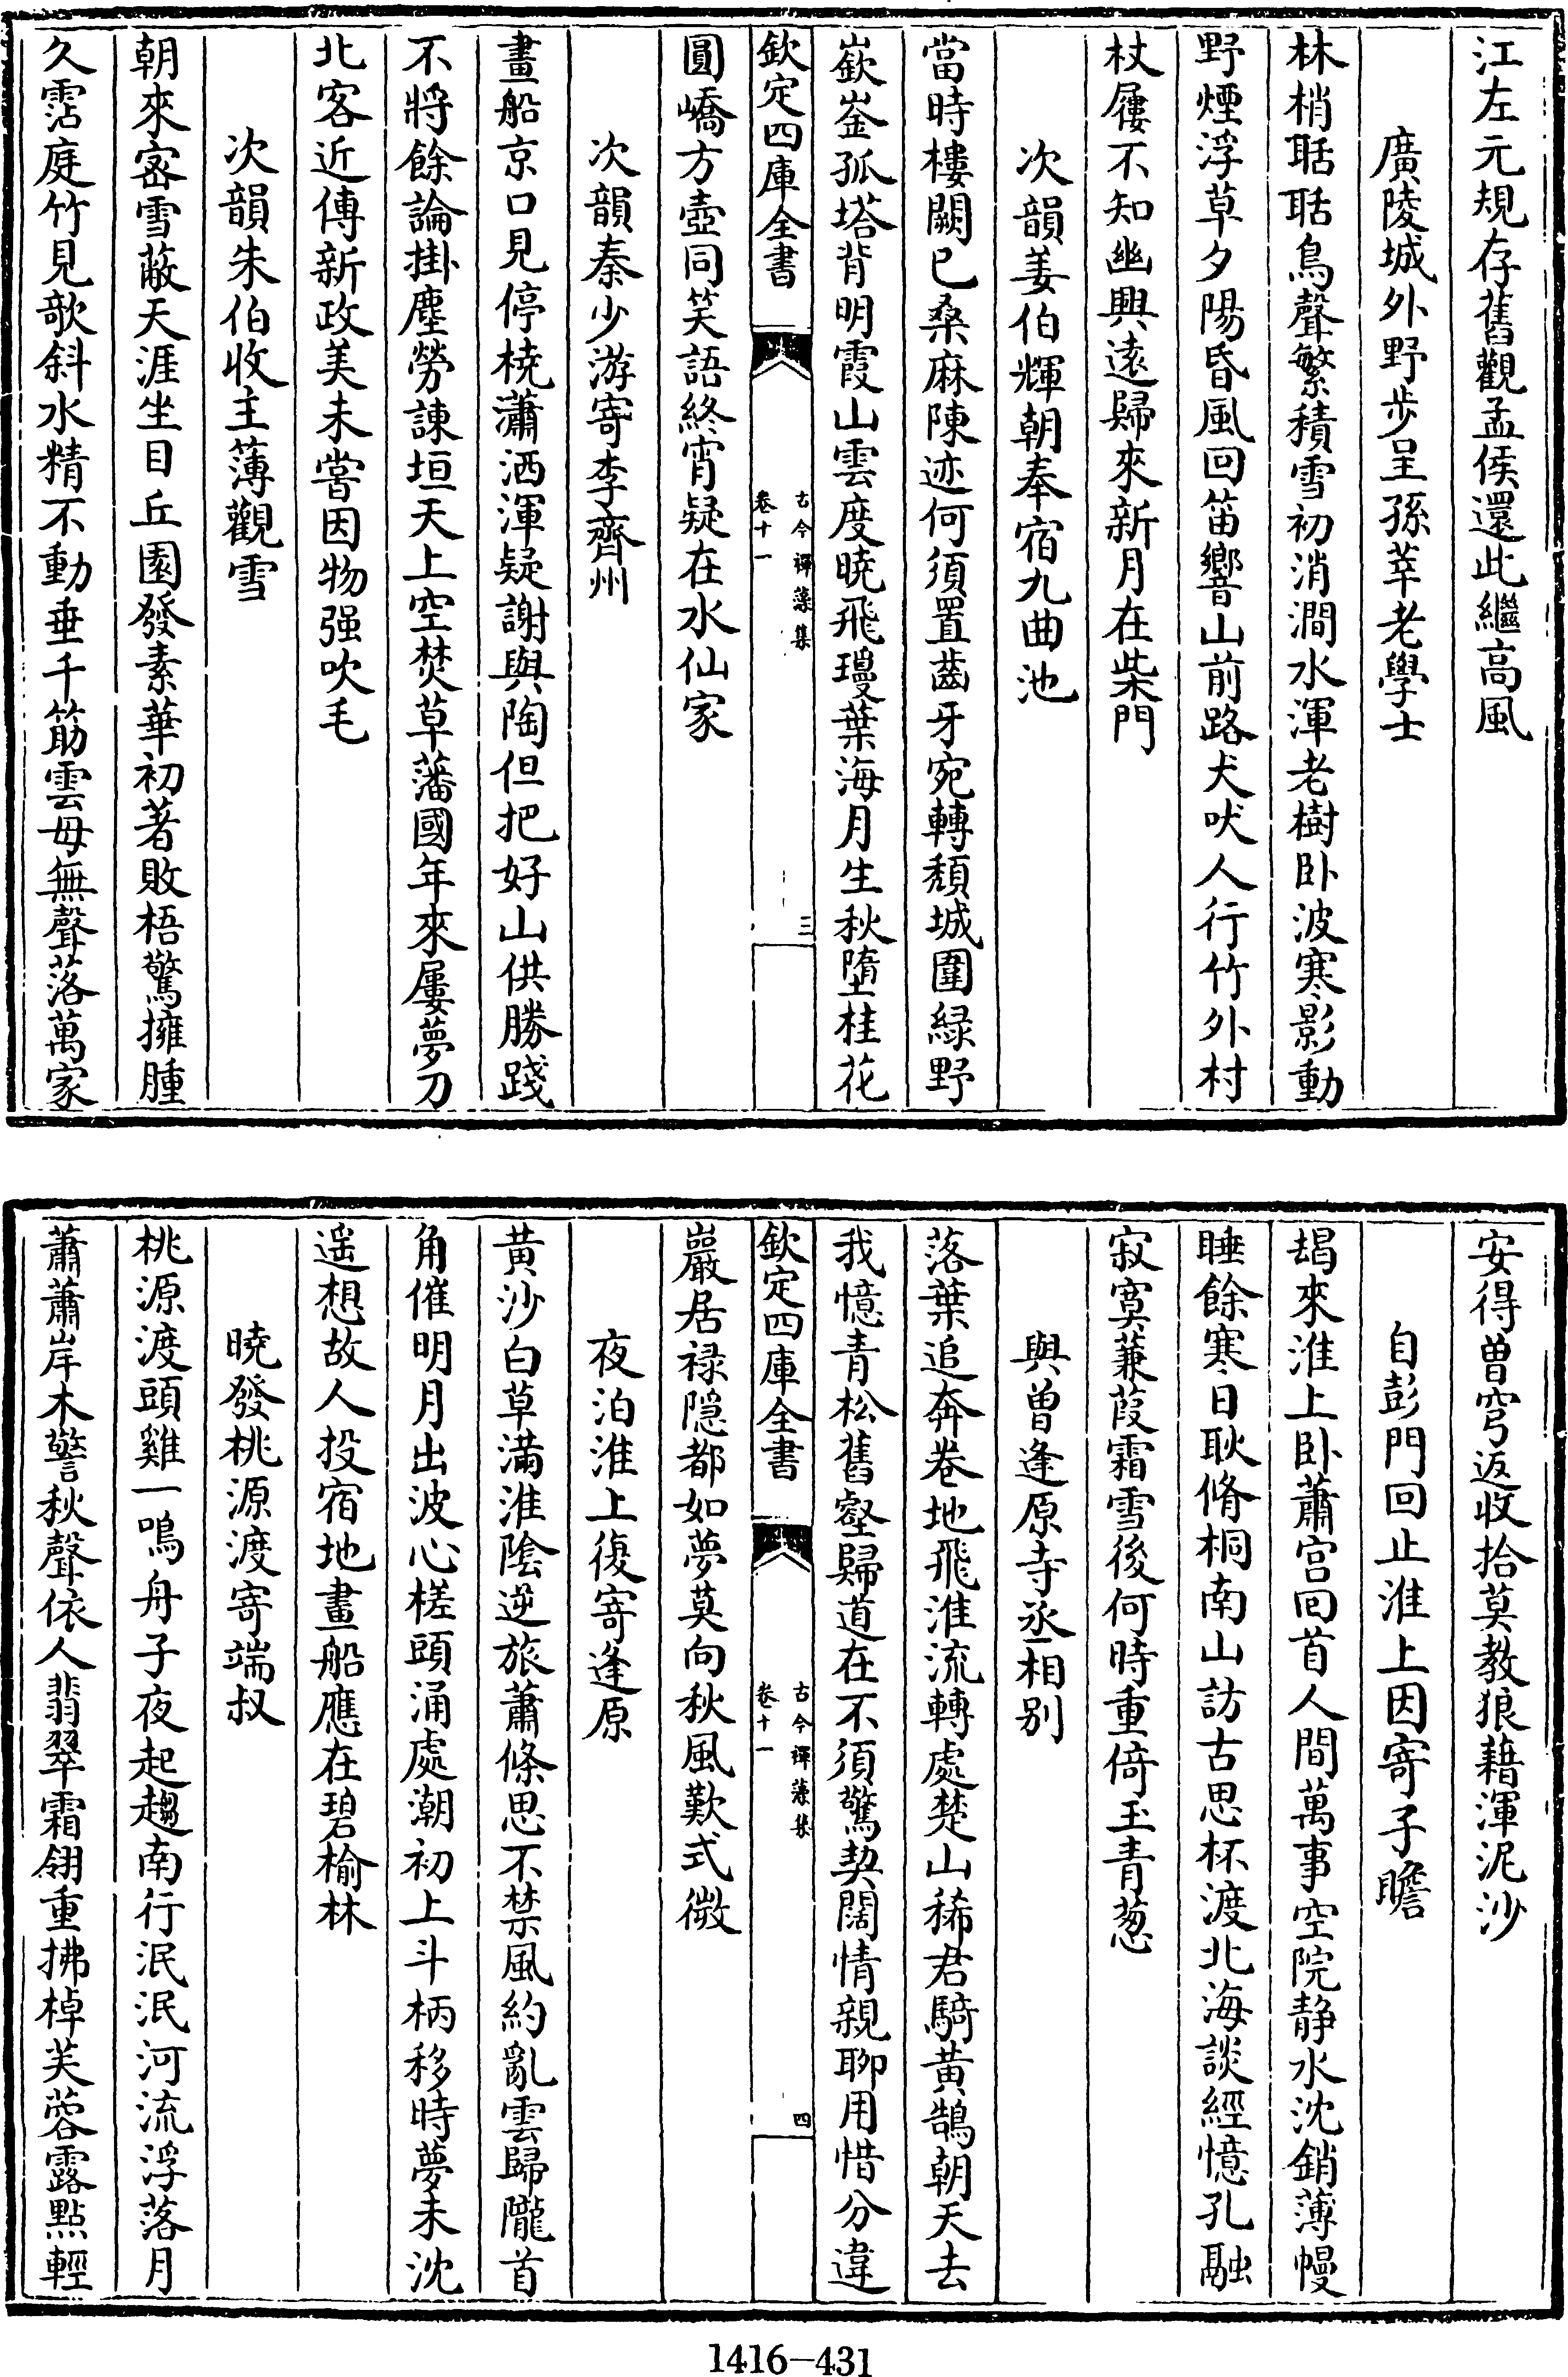 江左元規存舊觀孟侯還此繼高風
廣陵城外野步呈孫莘老學士
林梢聒聒鳥聲繁積雪初消澗水渾老樹卧波寒影動
野煙浮草夕陽昏風回笛響山前路犬吠人行竹外村
杖屨不知幽興遠歸來新月在柴門
次韻姜伯輝朝奉宿九曲池
當時樓闕已桑麻陳迹何須置齒牙宛轉頹城圍緑野
嶔崟孤塔背明霞山雲度曉飛瓊葉海月生秋墮桂花
欽定四庫全書
古今禪藻集
卷十一
三
圓嶠方壺同笑語終宵疑在水仙家
次韻秦少游寄李齊州
畫船京口見停橈瀟洒渾疑謝與陶但把好山供勝踐
不將餘論掛塵勞諫垣天上空焚草藩國年來屢夢刀
北客近傳新政美未嘗因物强吹毛
次韻朱伯收主薄觀雪
朝來密雪蔽天涯坐目丘園發素華初著敗梧驚擁腫
久霑庭竹見欹斜水精不動垂千筯雲母無聲落萬家
安得曾穹返收拾莫教狼藉渾泥沙
自彭門回止淮上因寄子瞻
朅來淮上卧蕭宫回首人間萬事空院静水沈銷薄幔
睡餘寒日耿脩桐南山訪古思杯渡北海談經憶孔融
寂寞蒹葭霜雪後何時重倚玉青葱
與曾逢原寺丞相别
落葉追奔卷地飛淮流轉處楚山稀君騎黄鵠朝天去
我憶青松舊壑歸道在不須驚契闊情親聊用惜分違
欽定四庫全書
古今禪藻集
卷十一
四
巖居禄隠都如夢莫向秋風歎式微
夜泊淮上復寄逢原
黄沙白草滿淮陰逆旅蕭條思不禁風約亂雲歸隴首
角催明月出波心槎頭涌處潮初上斗柄移時夢未沈
遥想故人投宿地畫船應在碧榆林
曉發桃源渡寄端叔
桃源渡頭雞一鳴舟子夜起趨南行泯泯河流浮落月
蕭蕭岸木警秋聲依人翡翠霜翎重拂棹芙蓉露點輕
1416-431